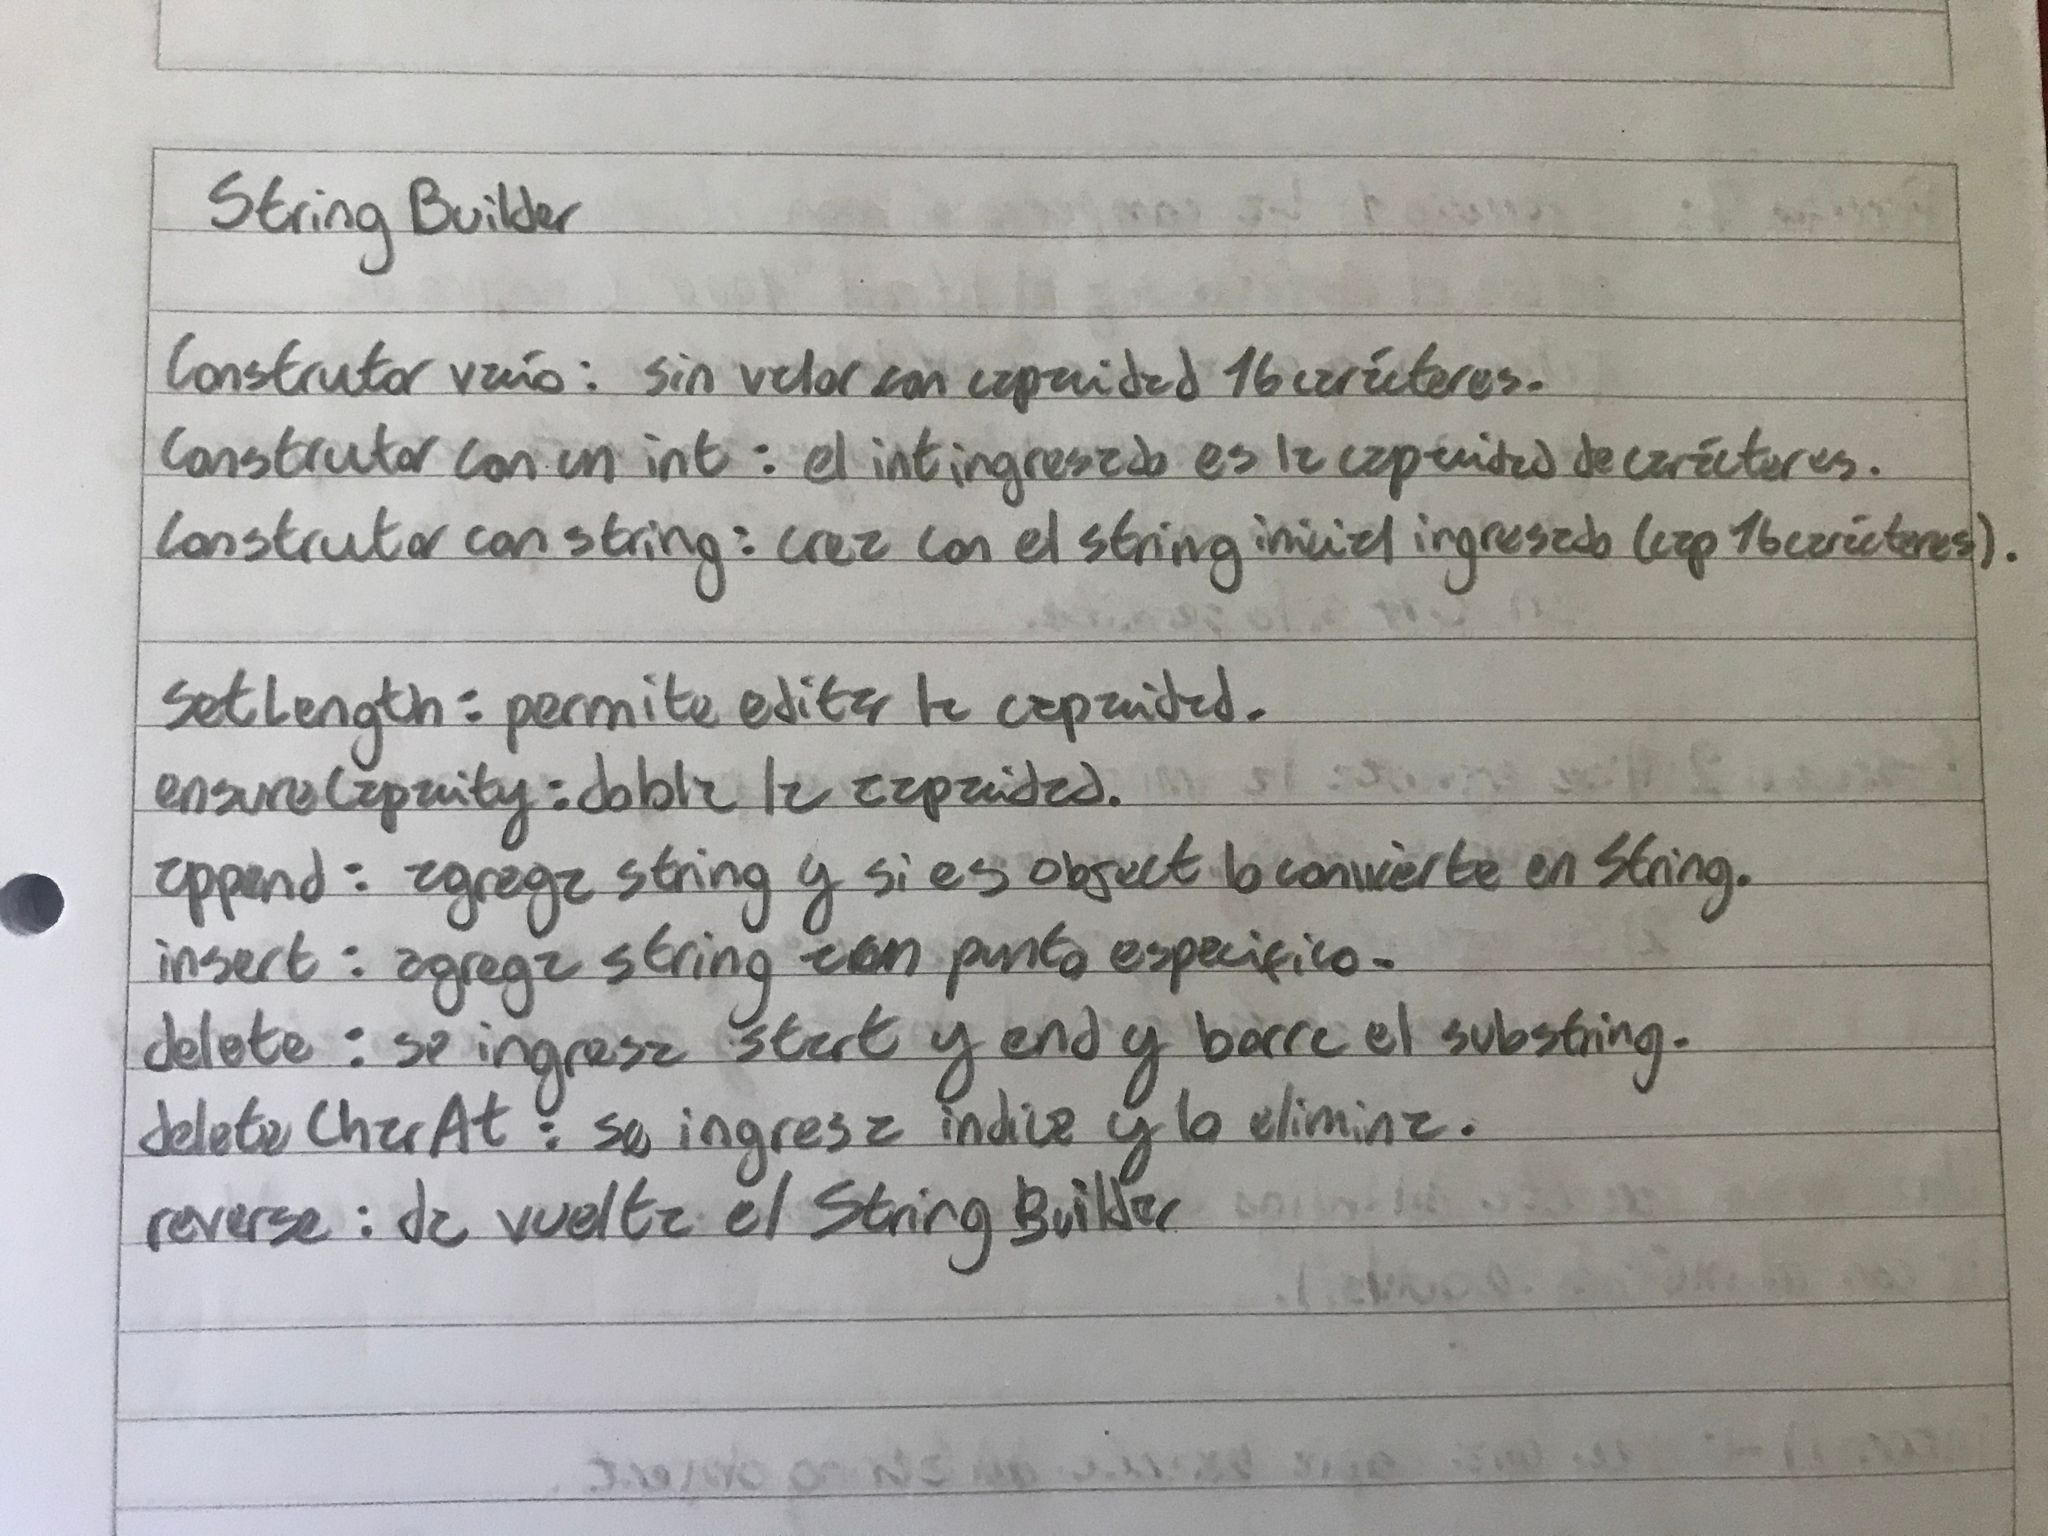 String Builder
Construtor vacío: sin valor con capacidad 16 carácteres.
Construtor con un int: el int ingresado es la capacidad de carácteres.
Construtor con string: crea con el string inicial ingresado (cap 16 carácteres).
setLength: permite editar la capacidad.
ensureCapacity: dobla la capacidad.
append: agrega string y si es object lo convierte en String.
insert: agrega string con punto especifico.
delete: se ingresa start y end y borra el substring.
deleteCharAt: se ingresa indice y lo elimina.
reverse: da vuelta el String Builder